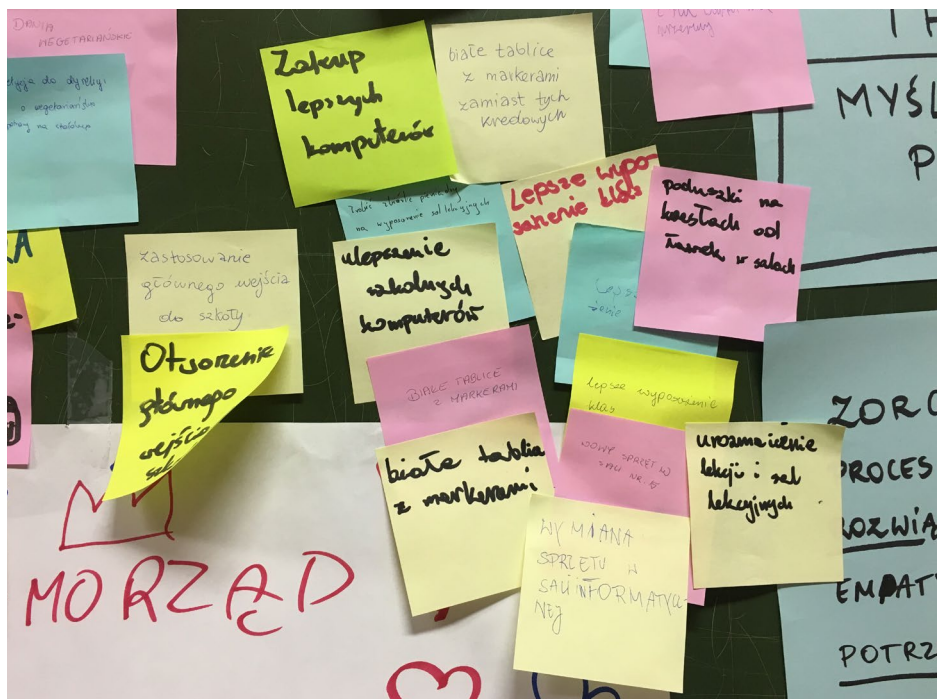 DANIA
WEGETARIAŃSKIE
do dyrekcji
o wegetariańskie
na stołówce
Zakup
lepszych
komputerów
białe tablice
z markerami
zamiast tych
kredowych
przerwy
MYŚL
P
na wyposażenie sal lekcyjnych
Lepsze wypo-
sażenie klas
poduszki na
krzesłach od
ławek w salach
zastosowanie
głównego wejścia
do szkoły
ulepszenie
szkolnych
komputerów
Otworzenie
głównego
wejścia
BIAŁE TABLICE
Z MARKERAMI
lepsze wyposażenie
klas
białe tablice
z markerami
NOWY SPRZĘT W
SALI NR. 15
urozmaicenie
lekcji i sal
lekcyjnych
WYMIANA
SPRZĘTU W
SALI INFORMATYCZ-
NEJ
MORZĄD
ZORG
PROCES
ROZWIĄ
EMPATY
POTRZ